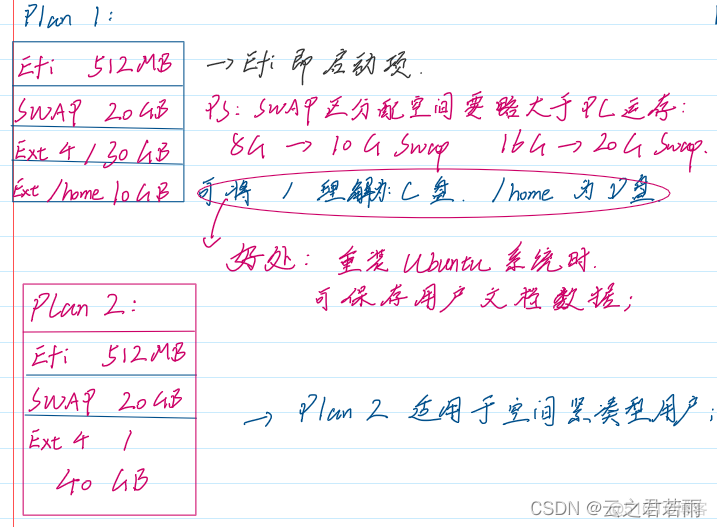 Plan 1:
Efi 512MB
→ Efi 即启动项.
SWAP 20GB
PS: SWAP区分配空间要略大于PC运存:
Ext 4 / 30GB
8G → 10G Swap 16G → 20G Swap.
Ext /home 10GB
可将 / 理解为: C盘. /home 为 D盘
好处: 重装 Ubuntu 系统时.
可保存用户文档数据;
Plan 2:
Efi 512MB
SWAP 20GB
Ext 4 /
40 GB
→ Plan 2 适用于空间紧凑型用户;
CSDN @云之君若雨